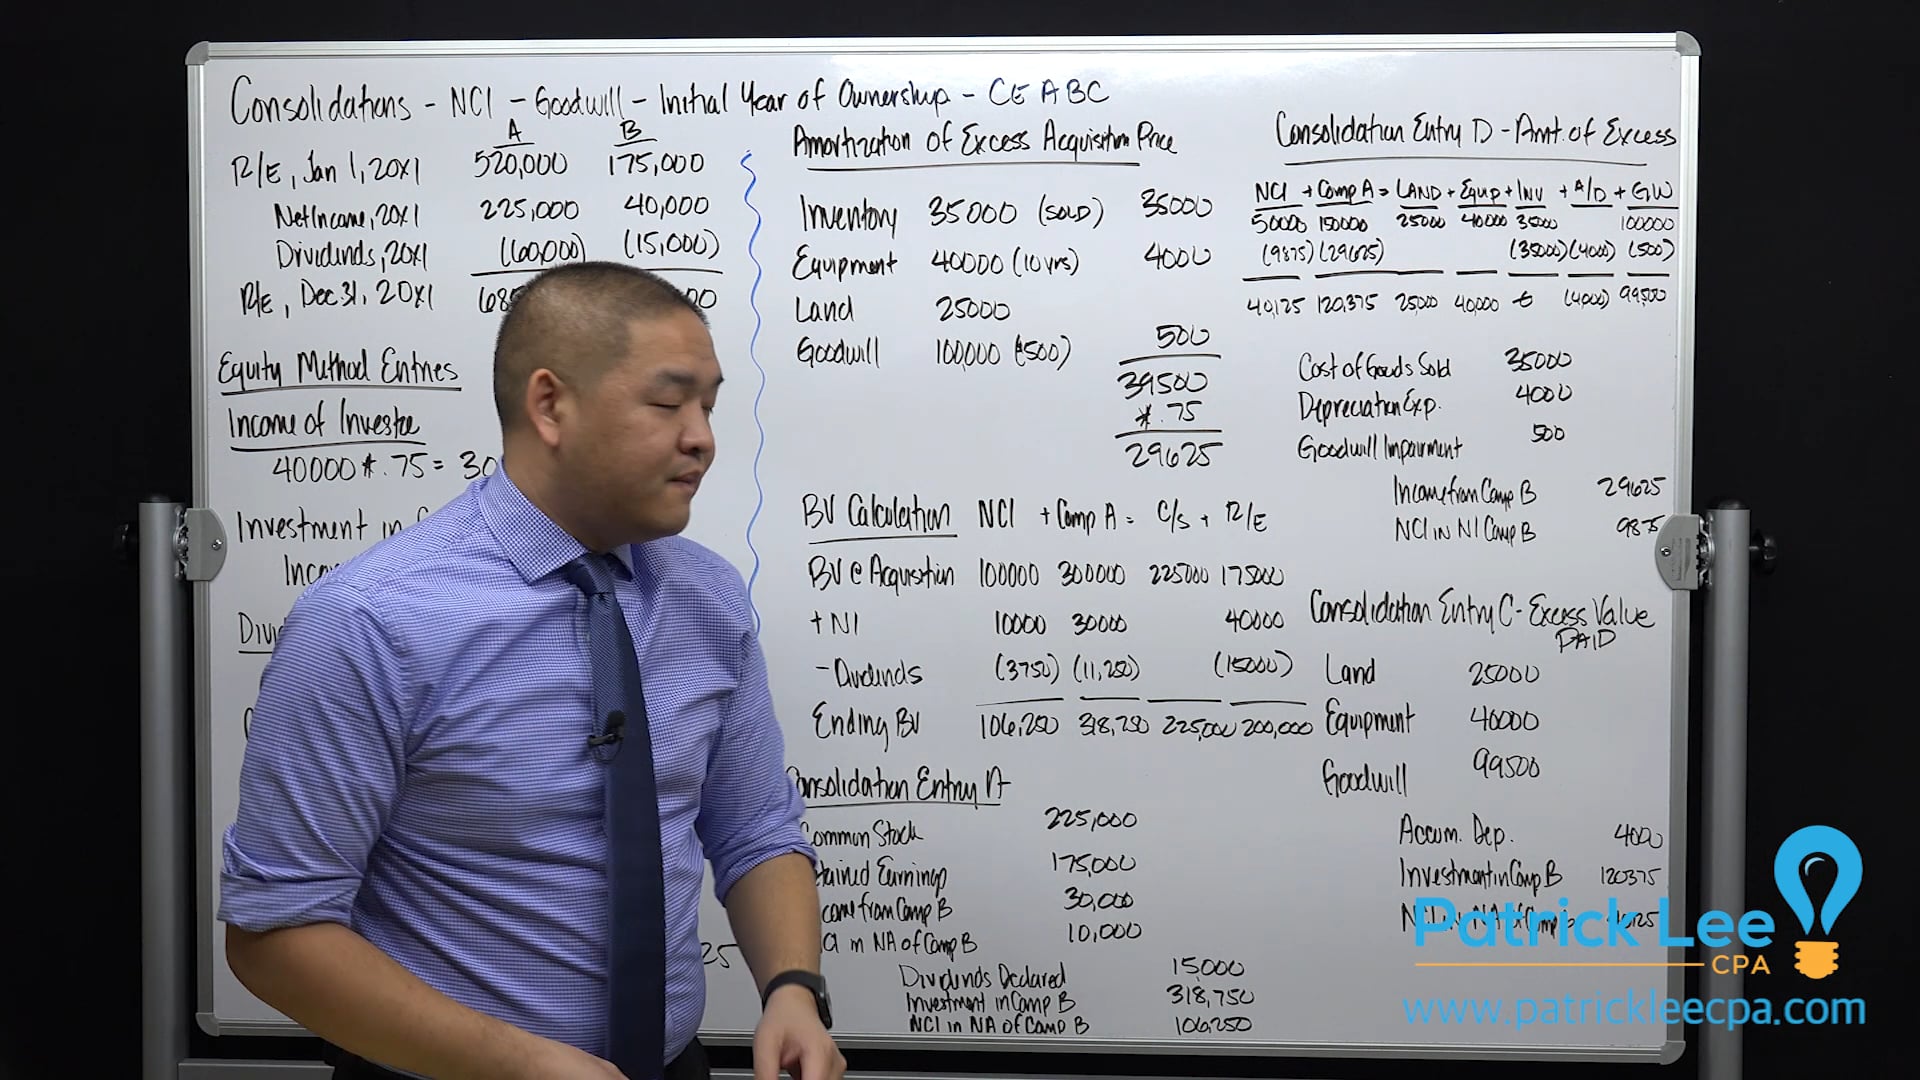 Consolidations - NCI - Goodwill - Initial Year of Ownership - CE ABC
A B
R/E, Jan 1, 20x1 520,000 175,000
Net Income, 20x1 225,000 40,000
Dividends, 20x1 (60,000) (15,000)
R/E, Dec 31, 20x1
Equity Method Entries
Income of Investee
40000 * .75 = 30
Investment in
Amortization of Excess Acquisition Price
Inventory 35000 (SOLD) 35000
Equipment 40000 (10 yrs) 4000
Land 25000
Goodwill 100,000 (500) 500
39500
* .75
29625
BV Calculation NCI + Comp A = C/S + R/E
BV @ Acquisition 100000 300000 225000 175000
+ NI 10000 30000 40000
- Dividends (3750) (11,250) (15000)
Ending BV 106,250 318,750 225,000 200,000
Consolidation Entry A
Common Stock 225,000
Retained Earnings 175,000
Income from Comp B 30,000
in NA of Comp B 10,000
Dividends Declared 15000
Investment in Comp B 318,750
NCI in NA of Comp B 106,250
25
Consolidation Entry D - Amt. of Excess
NCI + Comp A = LAND + Equip + INV + A/D + GW
50000 150000 25000 40000 35000 100000
(9875) (29625) (35000) (4000) (500)
40,125 120,375 25,000 40,000 0 (4,000) 99,500
Cost of Goods Sold 35000
Depreciation Exp. 4000
Goodwill Impairment 500
Income from Comp B 29625
NCI in NI Comp B 9875
Consolidation Entry C - Excess Value
PAID
Land 25000
Equipment 40000
Goodwill 99500
Accum. Dep. 4000
Investment in Comp B 120375
Patrick Lee
CPA
www.patrickleecpa.com